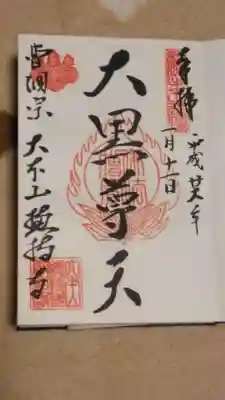 奉拝
平成廿六年
一月十一日
大黒尊天
曹洞宗 大本山總持寺